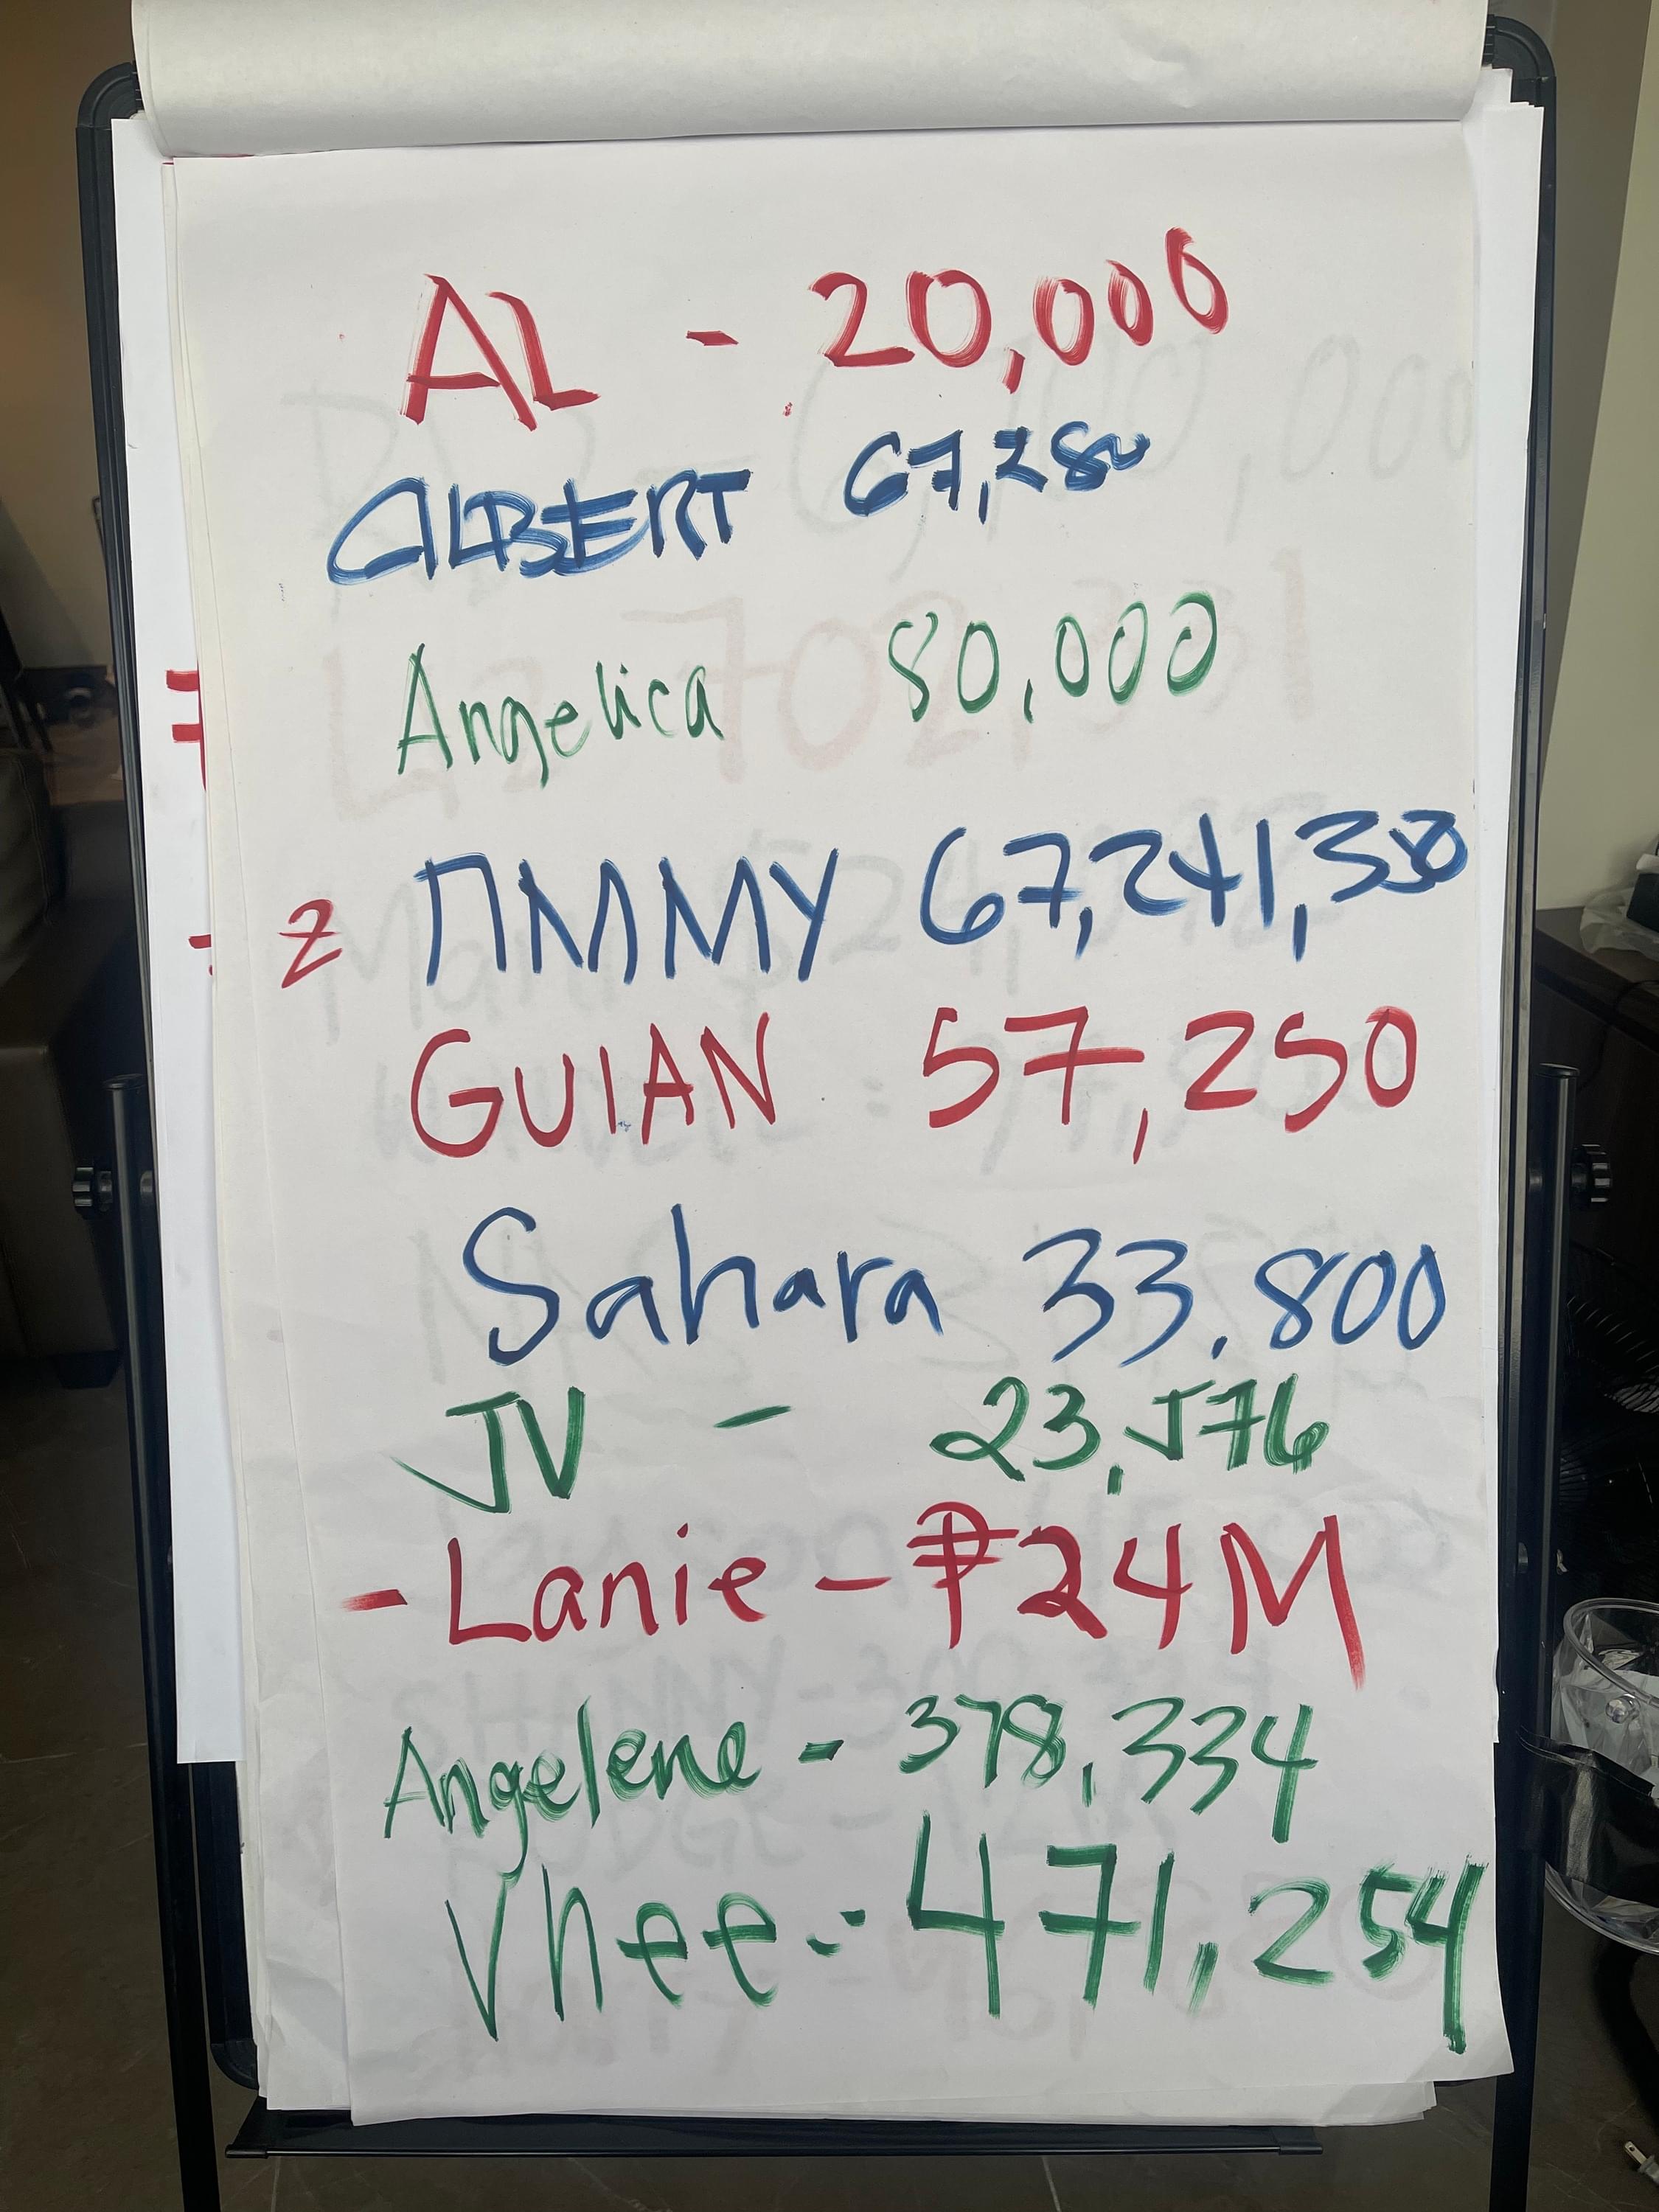 AL - 20,000
ALBERT 67,280
Angelica 80,000
2 TIMMY 67,241,380
GUIAN 57,250
Sahara 33.800
JV - 23,576
- Lanie - ₱24M
Angelene - 378,334
Vhee - 471,254